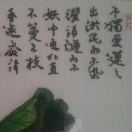 予獨愛蓮之
出淤泥而不染
濯清漣而不
妖中通外直
不蔓不枝
香遠益清